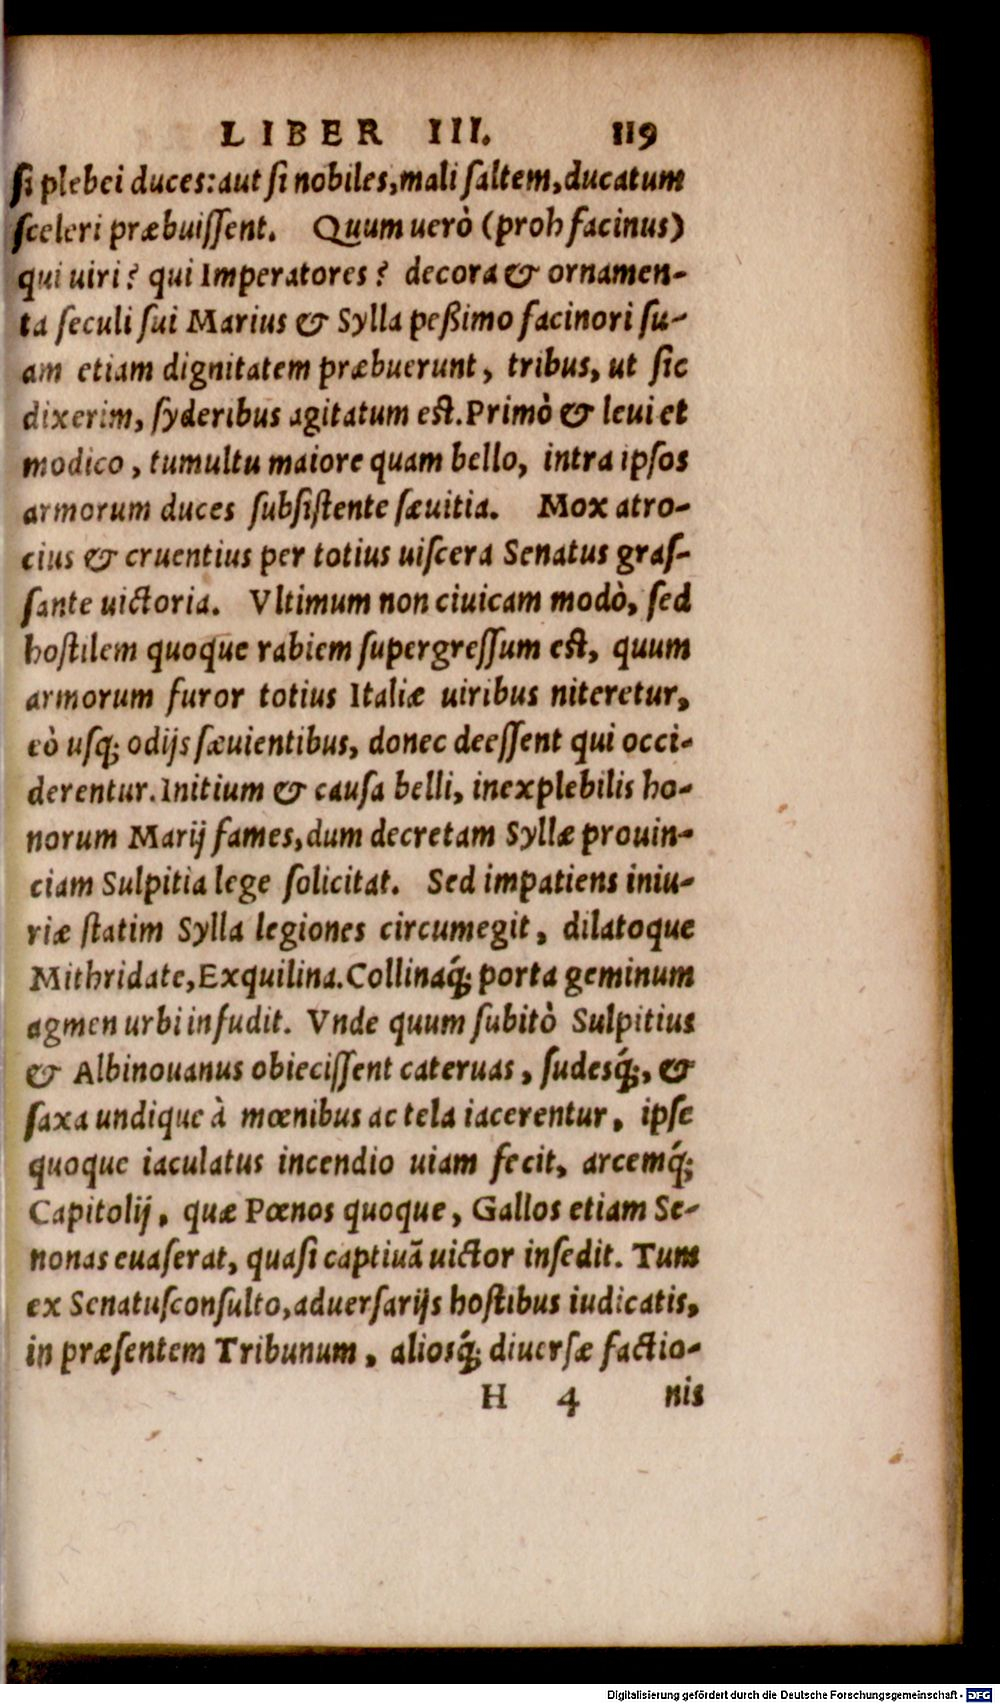 LIBER III. 119
ſi plebei duces: aut ſi nobiles, mali ſaltem, ducatum
ſceleri præbuiſſent. Quum uerò (proh facinus)
qui uiri? qui Imperatores? decora & ornamen-
ta ſeculi ſui Marius & Sylla peßimo facinori ſu-
am etiam dignitatem præbuerunt, tribus, ut ſic
dixerim, ſyderibus agitatum eſt. Primò & leui et
modico, tumultu maiore quam bello, intra ipſos
armorum duces ſubſiſtente ſæuitia. Mox atro-
cius & cruentius per totius uiſcera Senatus graſ-
ſante uictoria. Vltimum non ciuicam modò, ſed
hoſtilem quoque rabiem ſupergreſſum eſt, quum
armorum furor totius Italiæ uiribus niteretur,
eò uſq; odijs ſæuientibus, donec deeſſent qui occi-
derentur. Initium & cauſa belli, inexplebilis ho-
norum Marij fames, dum decretam Syllæ prouin-
ciam Sulpitia lege ſolicitat. Sed impatiens iniu-
riæ ſtatim Sylla legiones circumegit, dilatoque
Mithridate, Exquilina. Collinaq́; porta geminum
agmen urbi infudit. Vnde quum ſubitò Sulpitius
& Albinouanus obieciſſent cateruas, ſudesq́;, &
ſaxa undique à mœnibus ac tela iacerentur, ipſe
quoque iaculatus incendio uiam fecit, arcemq́;
Capitolij, quæ Pœnos quoque, Gallos etiam Se-
nonas euaſerat, quaſi captiuã uictor inſedit. Tum
ex Senatuſconſulto, aduerſarijs hoſtibus iudicatis,
in præſentem Tribunum, aliosq́; diuerſæ factio-
H 4 nis
Digitalisierung gefördert durch die Deutsche Forschungsgemeinschaft - DFG